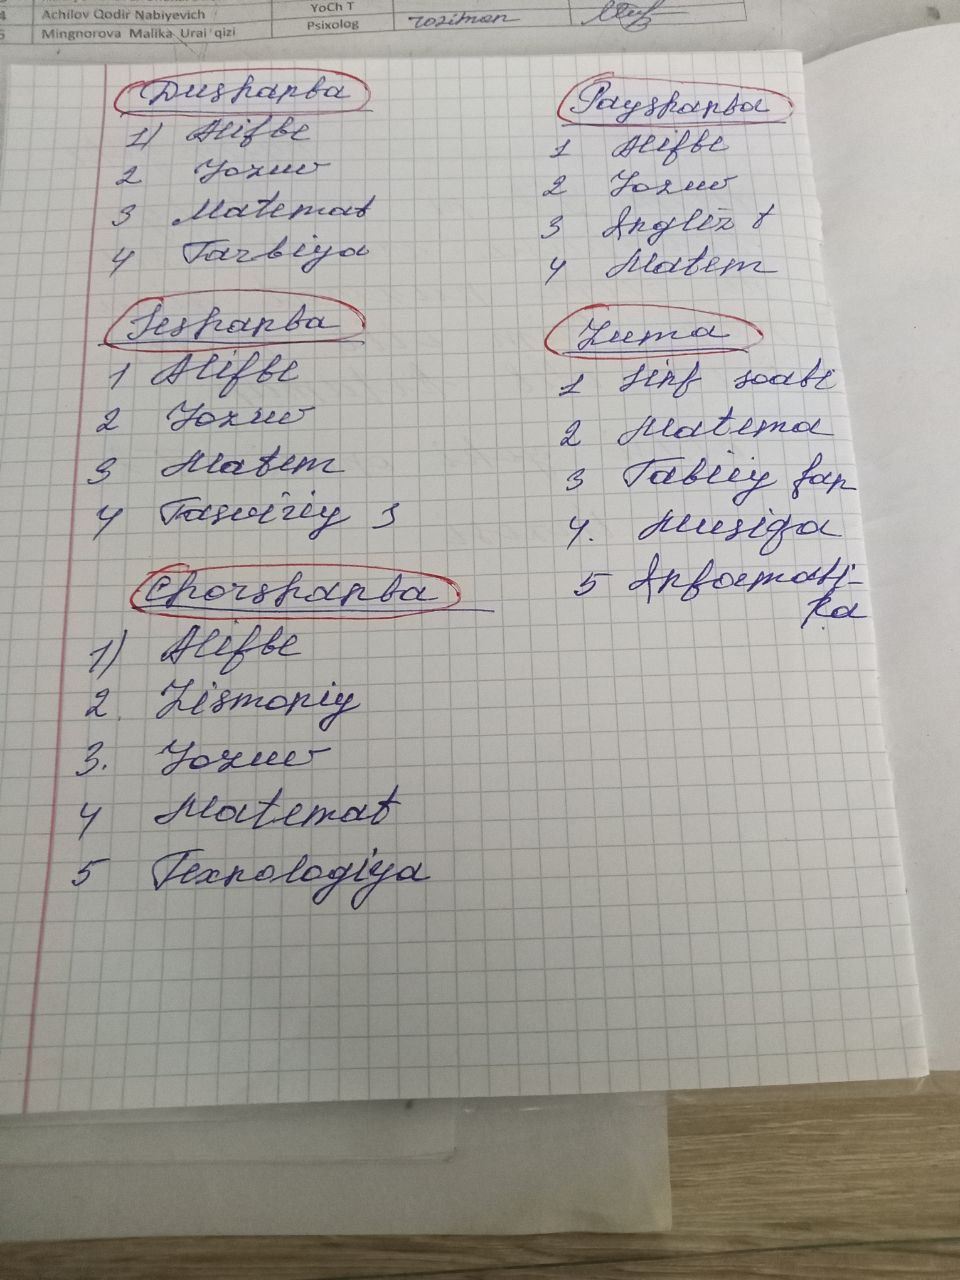 4 Achilov Qodir Nabiyevich YoCh T
5 Mingnorova Malika Urai qizi Psixolog roziman
Dushanba
1) Alifbe
2 Yozuv
3 Matemat
4 Tarbiya
Seshanba
1 Alifbe
2 Yozuv
3 Matem
4 Tasviriy s
Chorshanba
1) Alifbe
2. Jismoniy
3. Yozuv
4 Matemat
5 Texnologiya
Payshanba
1 Alifbe
2 Yozuv
3 Ingliz t
4 Matem
Juma
1 Sinf soati
2 Matema
3 Tabiiy fan
4. Musiqa
5 Informati-
ka